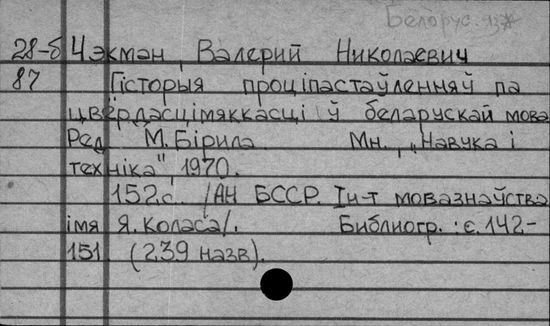 Белорус. яз*
28-б Чэкман, Валерий Николаевич
87 Гісторыя проціпастаўленняў па
цвёрдасці мяккасці ў беларускай мове
Рэд. М. Бірыла. Мн., „Навука і
тэхніка", 1970.
152.с. /АН БССР. Ін-т мовазнаўства
імя Я. Коласа/. Библиогр.: с. 142-
151 (239 назв).